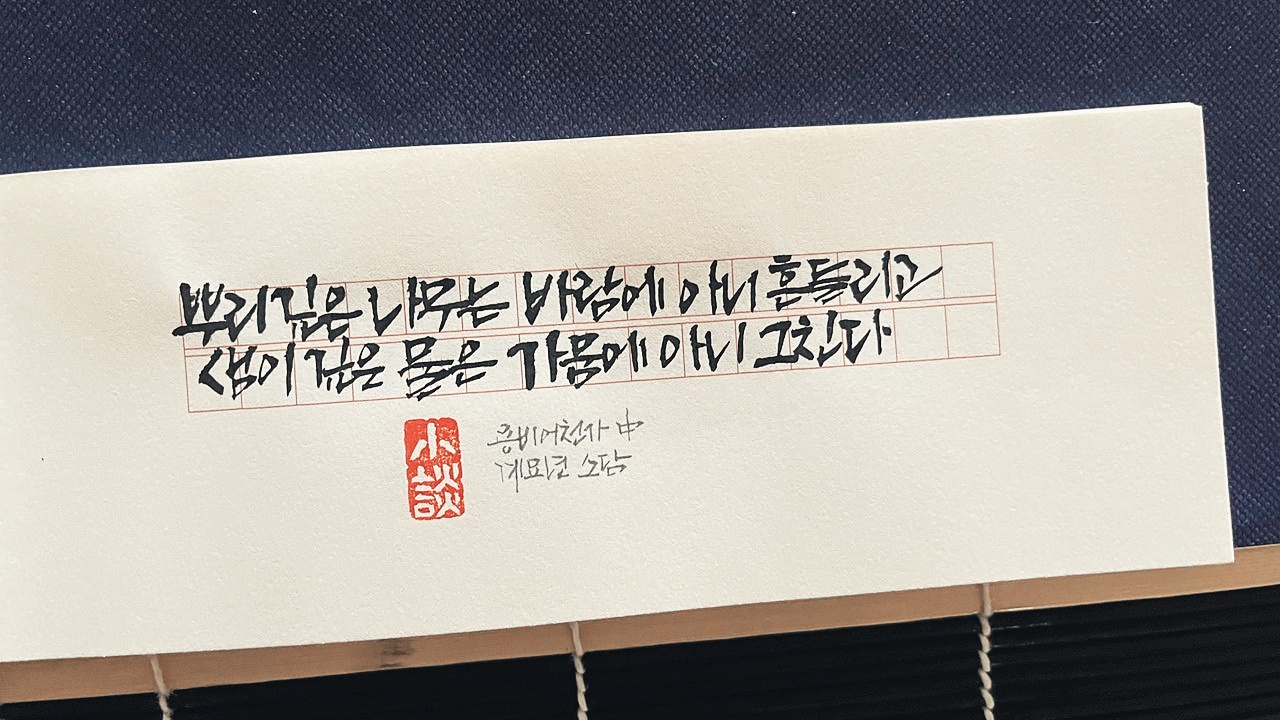 뿌리 깊은 나무는 바람에 아니 흔들리고
샘이 깊은 물은 가뭄에 아니 그친다
小談
용비어천가 中
계묘년 소담